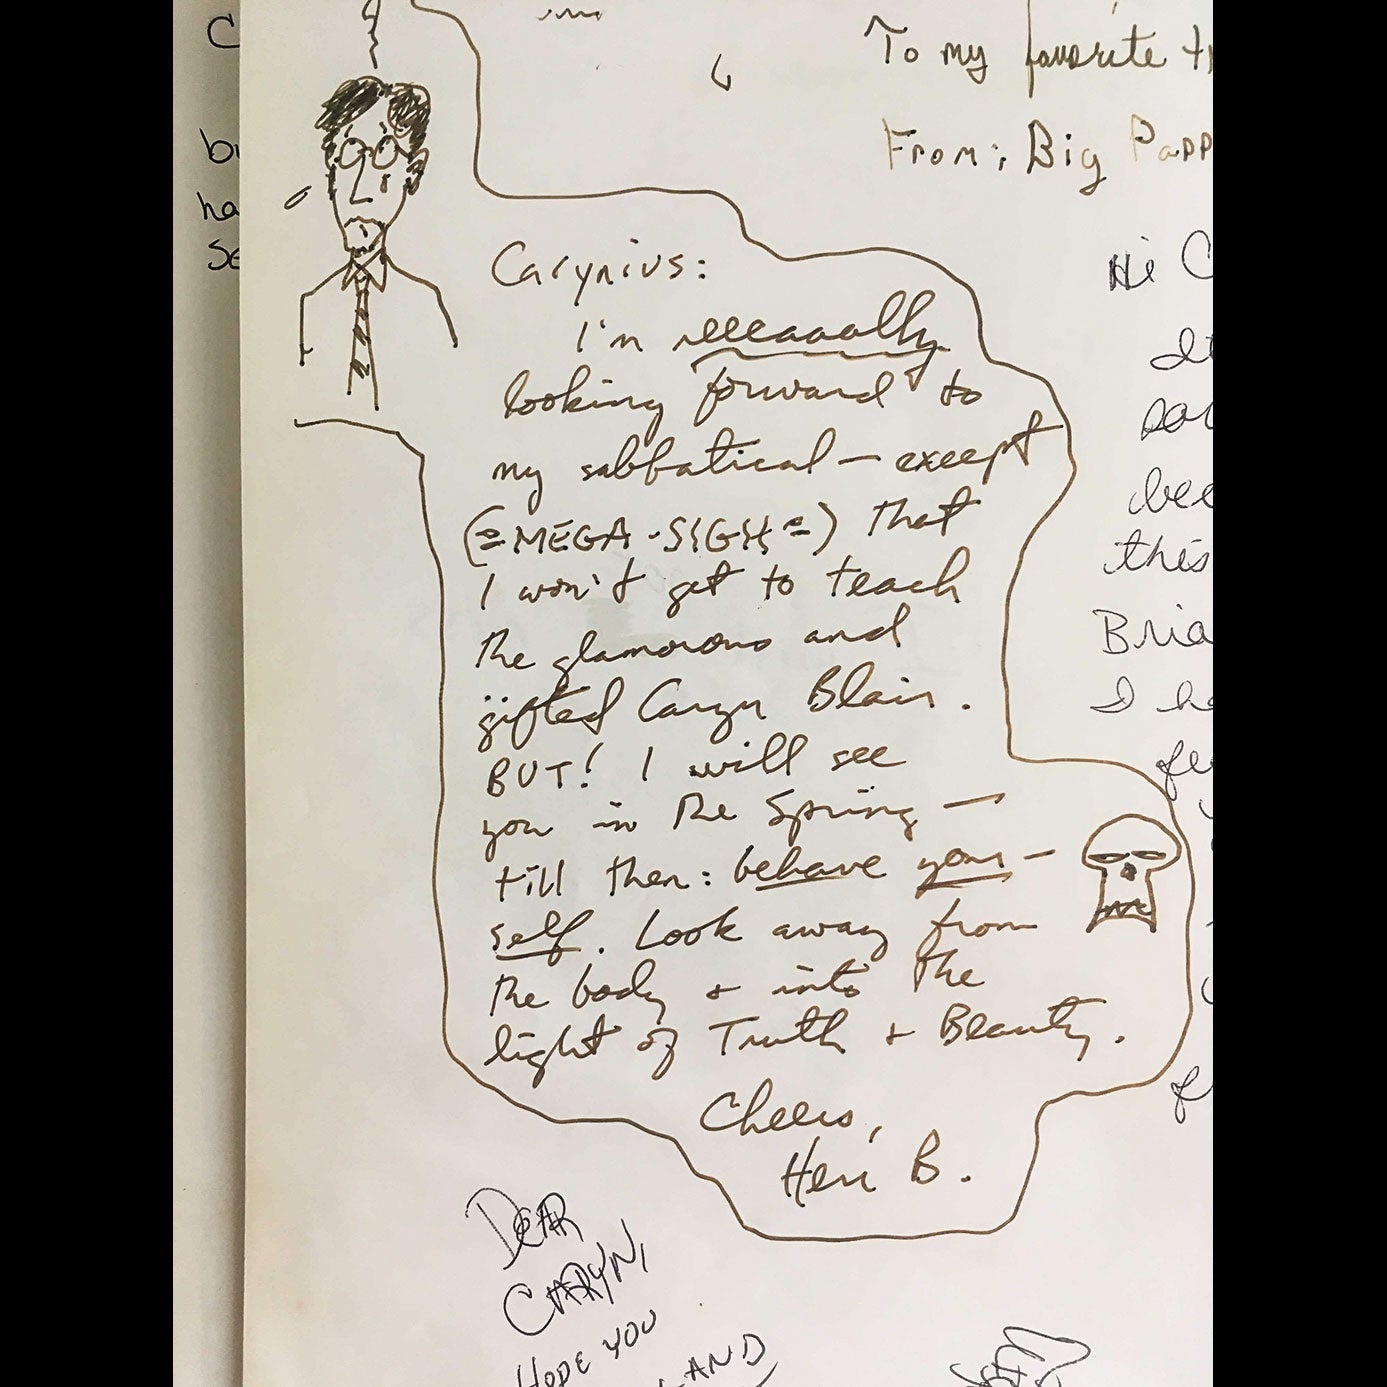 C
bu
ha
se
To my favorite t
From: Big Papp
Carynius:
I'm reeeaaally
looking forward to
my sabbatical — except
(=MEGA-SIGH=) that
I won't get to teach
the glamorous and
gifted Caryn Blair.
BUT! I will see
you in the Spring —
till then: behave your-
self. Look away from
the body & into the
light of Truth & Beauty.
Cheers,
Herr B.
Hi C
It
bee
this
Bria
I ha
fe
f
DEAR
CARYN,
HOPE YOU
LAND